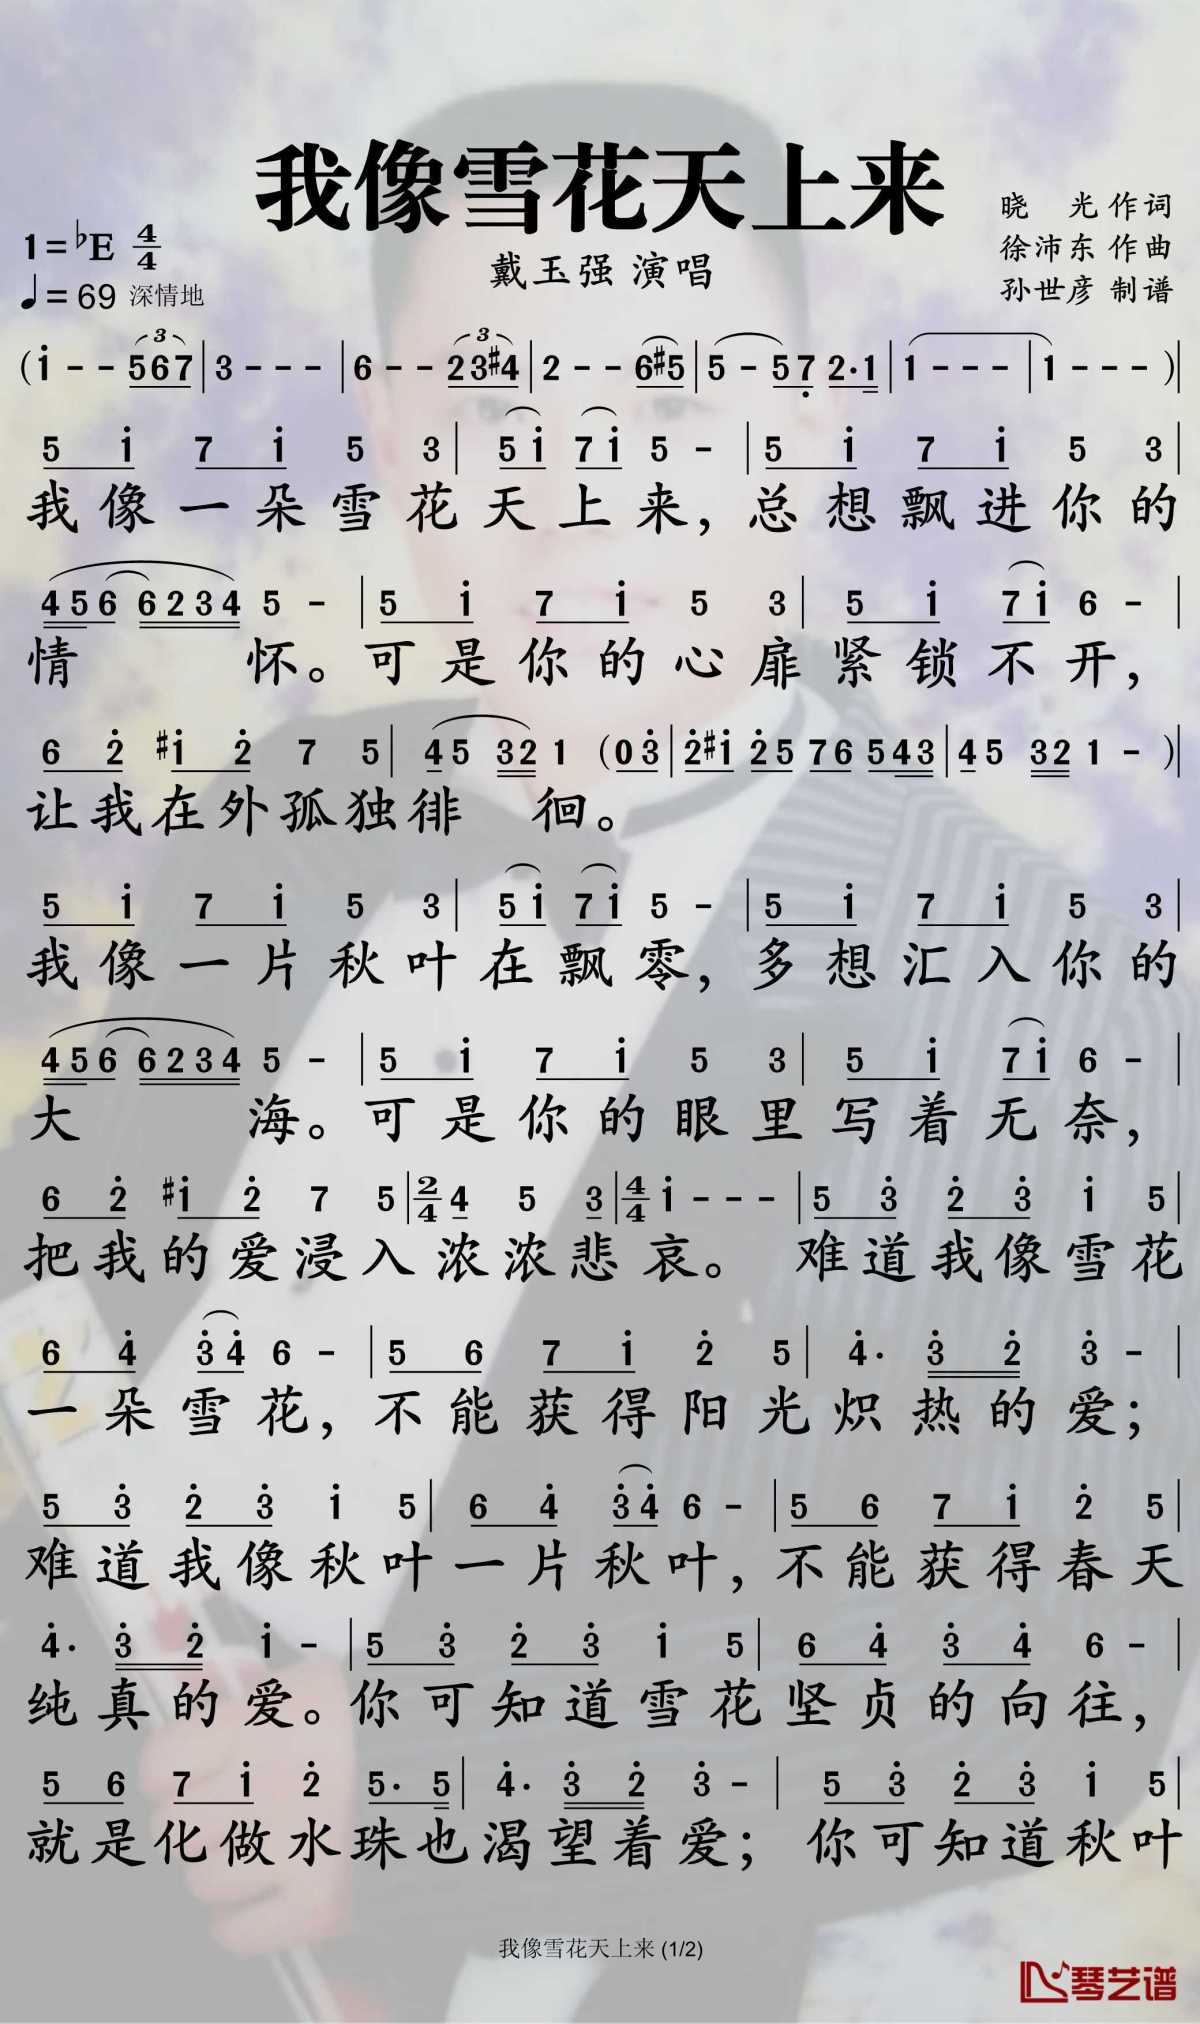 我像雪花天上来
晓 光 作词
1=♭E 4/4
徐沛东 作曲
戴玉强 演唱
♩=69 深情地
孙世彦 制谱
(i - - 567|3 - - -|6 - - 23#4|2 - - 6#5|5 - 57 2·1|1 - - -|1 - - -)|
5 i 7 i 5 3|5i 7i 5 -|5 i 7 i 5 3|
我像一朵雪花天上来，总想飘进你的
456 6234 5 -|5 i 7 i 5 3|5 i 7i 6 -|
情 怀。可是你的心扉紧锁不开，
6 2 #i 2 7 5|45 32 1 (03|2#i 25 76 543|45 32 1 -)|
让我在外孤独徘 徊。
5 i 7 i 5 3|5i 7i 5 -|5 i 7 i 5 3|
我像一片秋叶在飘零，多想汇入你的
456 6234 5 -|5 i 7 i 5 3|5 i 7i 6 -|
大 海。可是你的眼里写着无奈，
6 2 #i 2 7 5|2/4 4 5 3|4/4 i - - -|5 3 2 3 i 5|
把我的爱浸入浓浓悲哀。 难道我像雪花
6 4 34 6 -|5 6 7 i 2 5|4· 3 2 3 -|
一朵雪花，不能获得阳光炽热的爱；
5 3 2 3 i 5|6 4 34 6 -|5 6 7 i 2 5|
难道我像秋叶一片秋叶，不能获得春天
4· 3 2 i -|5 3 2 3 i 5|6 4 3 4 6 -|
纯真的爱。你可知道雪花坚贞的向往，
5 6 7 i 2 5· 5|4· 3 2 3 -|5 3 2 3 i 5|
就是化做水珠也渴望着爱；你可知道秋叶
我像雪花天上来 (1/2)
琴艺谱